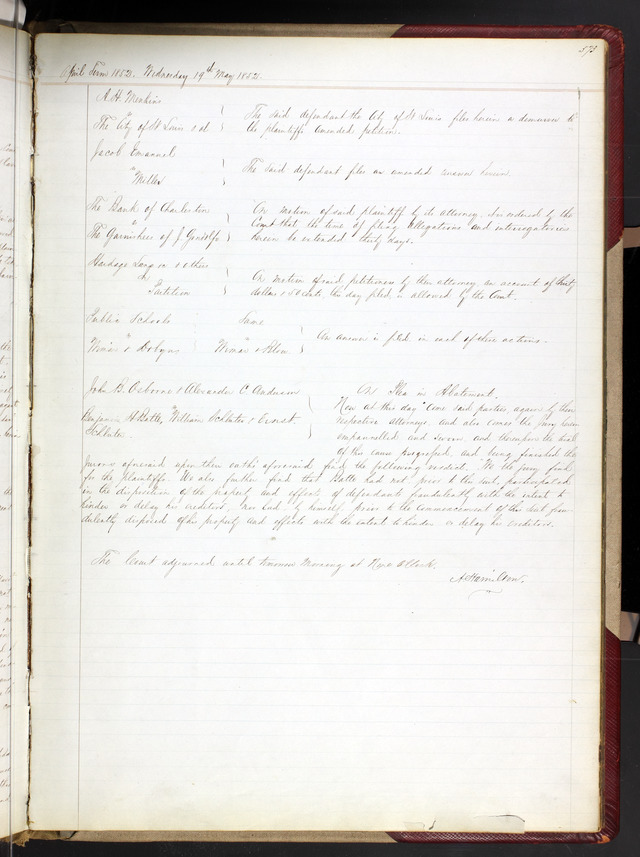 573
April Term 1852. Wednesday 19th May 1852.
A. H. Menkins
vs
The City of St Louis & al
The said defendant the City of St Louis files herein a demurrer to
the plaintiffs amended petition.
Jacob Emanuel
vs
Miller
The said defendant files an amended answer herein.
The Bank of Charleston
vs
The Garnishees of J.
On motion of said plaintiff by its attorney, it is ordered by the
Court that the time of filing allegations and interrogatories
herein be extended thirty days.
Hardage Lane & others
Partition
On motion of said petitioners by their attorney, an account of thirty
dollars & 50 cents, this day filed, is allowed by the Court.
Public Schools
vs
Wimer & Dobyns
Same
vs
Wimer &
An answer is filed in each of these actions.
John B. Osborne & Alexander C. Anderson
vs
Benjamin H Batte, William Schluter & Ernst
Schluter.
On Plea in Abatement.
Now at this day come said parties again by their
respective attorneys, and also comes the jury
empannelled and sworn, and thereupon the trial
of this cause progressed, and being finished the
Jurors aforesaid upon their oaths aforesaid find the following verdict. We the jury find
for the plaintiffs. We also further find that Batte had not prior to this suit, participated
in the disposition of the property and effects of defendant fraudulently with the intent to
hinder or delay his creditors, nor had by himself prior to the commencement of this suit frau-
dulently disposed of his property and effects with the intent to hinder or delay his creditors.
The Court adjourned until tomorrow Morning at Nine oClock.
A Hamilton.